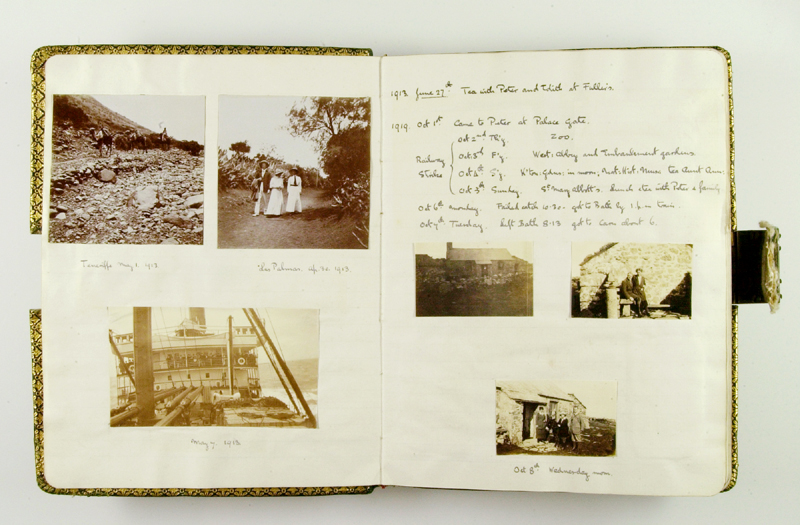 Teneriffe May 1. 1913
Las Palmas. Ap. 30. 1913.
May 7. 1913.
1913 June 27th. Tea with Peter and Edith at Fuller's.
1919. Oct 1st Came to Peter at Palace Gate.
Oct 2nd Th'y. Zoo.
Railway Oct 3rd F'y. West. Abbey and Embankment gardens.
Strike Oct 4th S'y. K'ton. Gdns. in morn, Nat. Hist. Mus. tea Aunt Ann.
Oct 5th Sunday. St Mary Abbott's. Lunch etc with Peter & family
Oct 6th Monday. 10.30. got to Bath by 1.4 in train.
Oct 7th Tuesday. left Bath 8.13 got to about 6.
Oct 8th Wednesday morn.